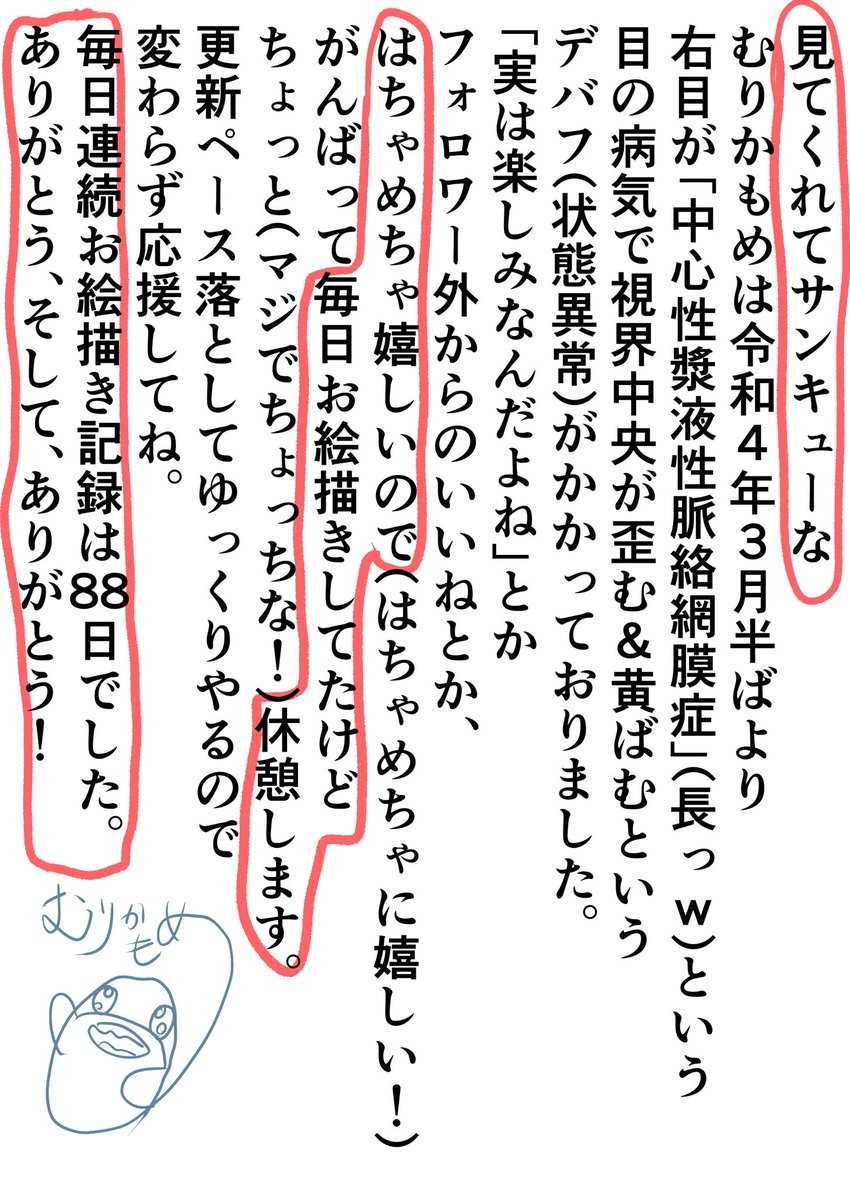 見てくれてサンキューな
むりかもめは令和4年3月半ばより
右目が「中心性漿液性脈絡網膜症」(長っw)という
目の病気で視界中央が歪む&黄ばむという
デバフ(状態異常)がかかっておりました。
「実は楽しみなんだよね」とか
フォロワー外からのいいねとか、
はちゃめちゃ嬉しいので(はちゃめちゃに嬉しい!)
がんばって毎日お絵描きしてたけど
ちょっと(マジでちょっちな!)休憩します。
更新ペース落としてゆっくりやるので
変わらず応援してね。
毎日連続お絵描き記録は88日でした。
ありがとう、そして、ありがとう!
むりかもめ